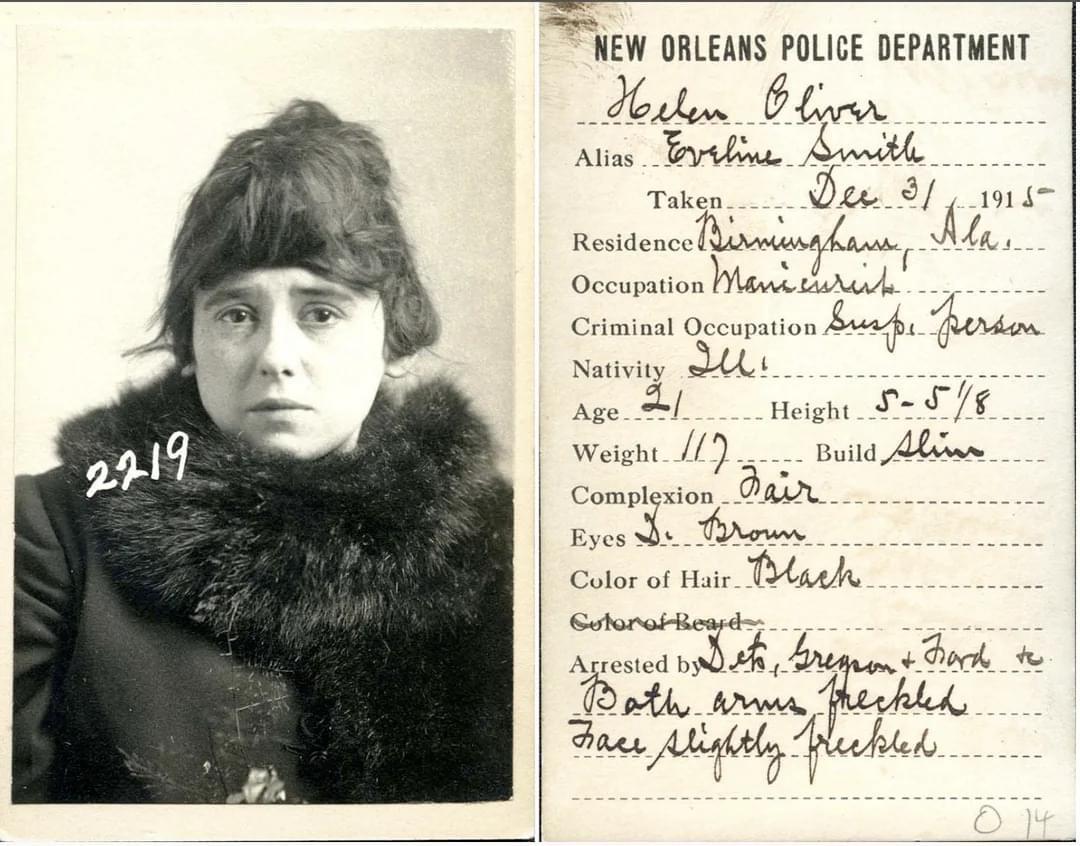 2219
NEW ORLEANS POLICE DEPARTMENT
Helen Oliver
Alias Eveline Smith
Taken Dec 31, 1915
Residence Birmingham, Ala.
Occupation Manicurist
Criminal Occupation Susp. person
Nativity Ill.
Age 21 Height 5-5 1/8
Weight 117 Build Slim
Complexion Fair
Eyes D. Brown
Color of Hair Black
Color of Beard
Arrested by Dets, Gregson + Ford
Both arms freckled
Face slightly freckled
O 14